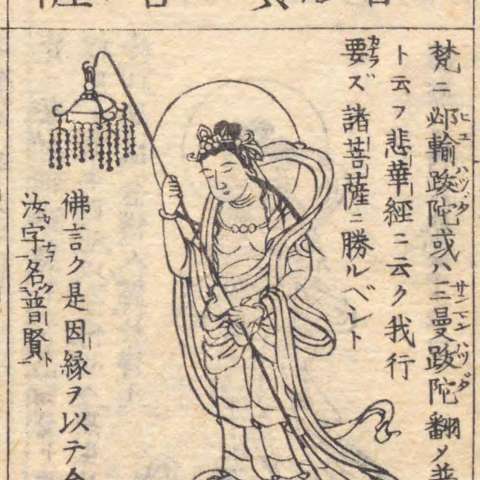 梵ニ邲輸跋陀或ハ三曼跋陀翻メ普
ト云フ悲華經ニ云ク我行
要ズ諸菩薩ニ勝ルベシト
佛言ク是因縁ヲ以テ今
汝字名普賢ト